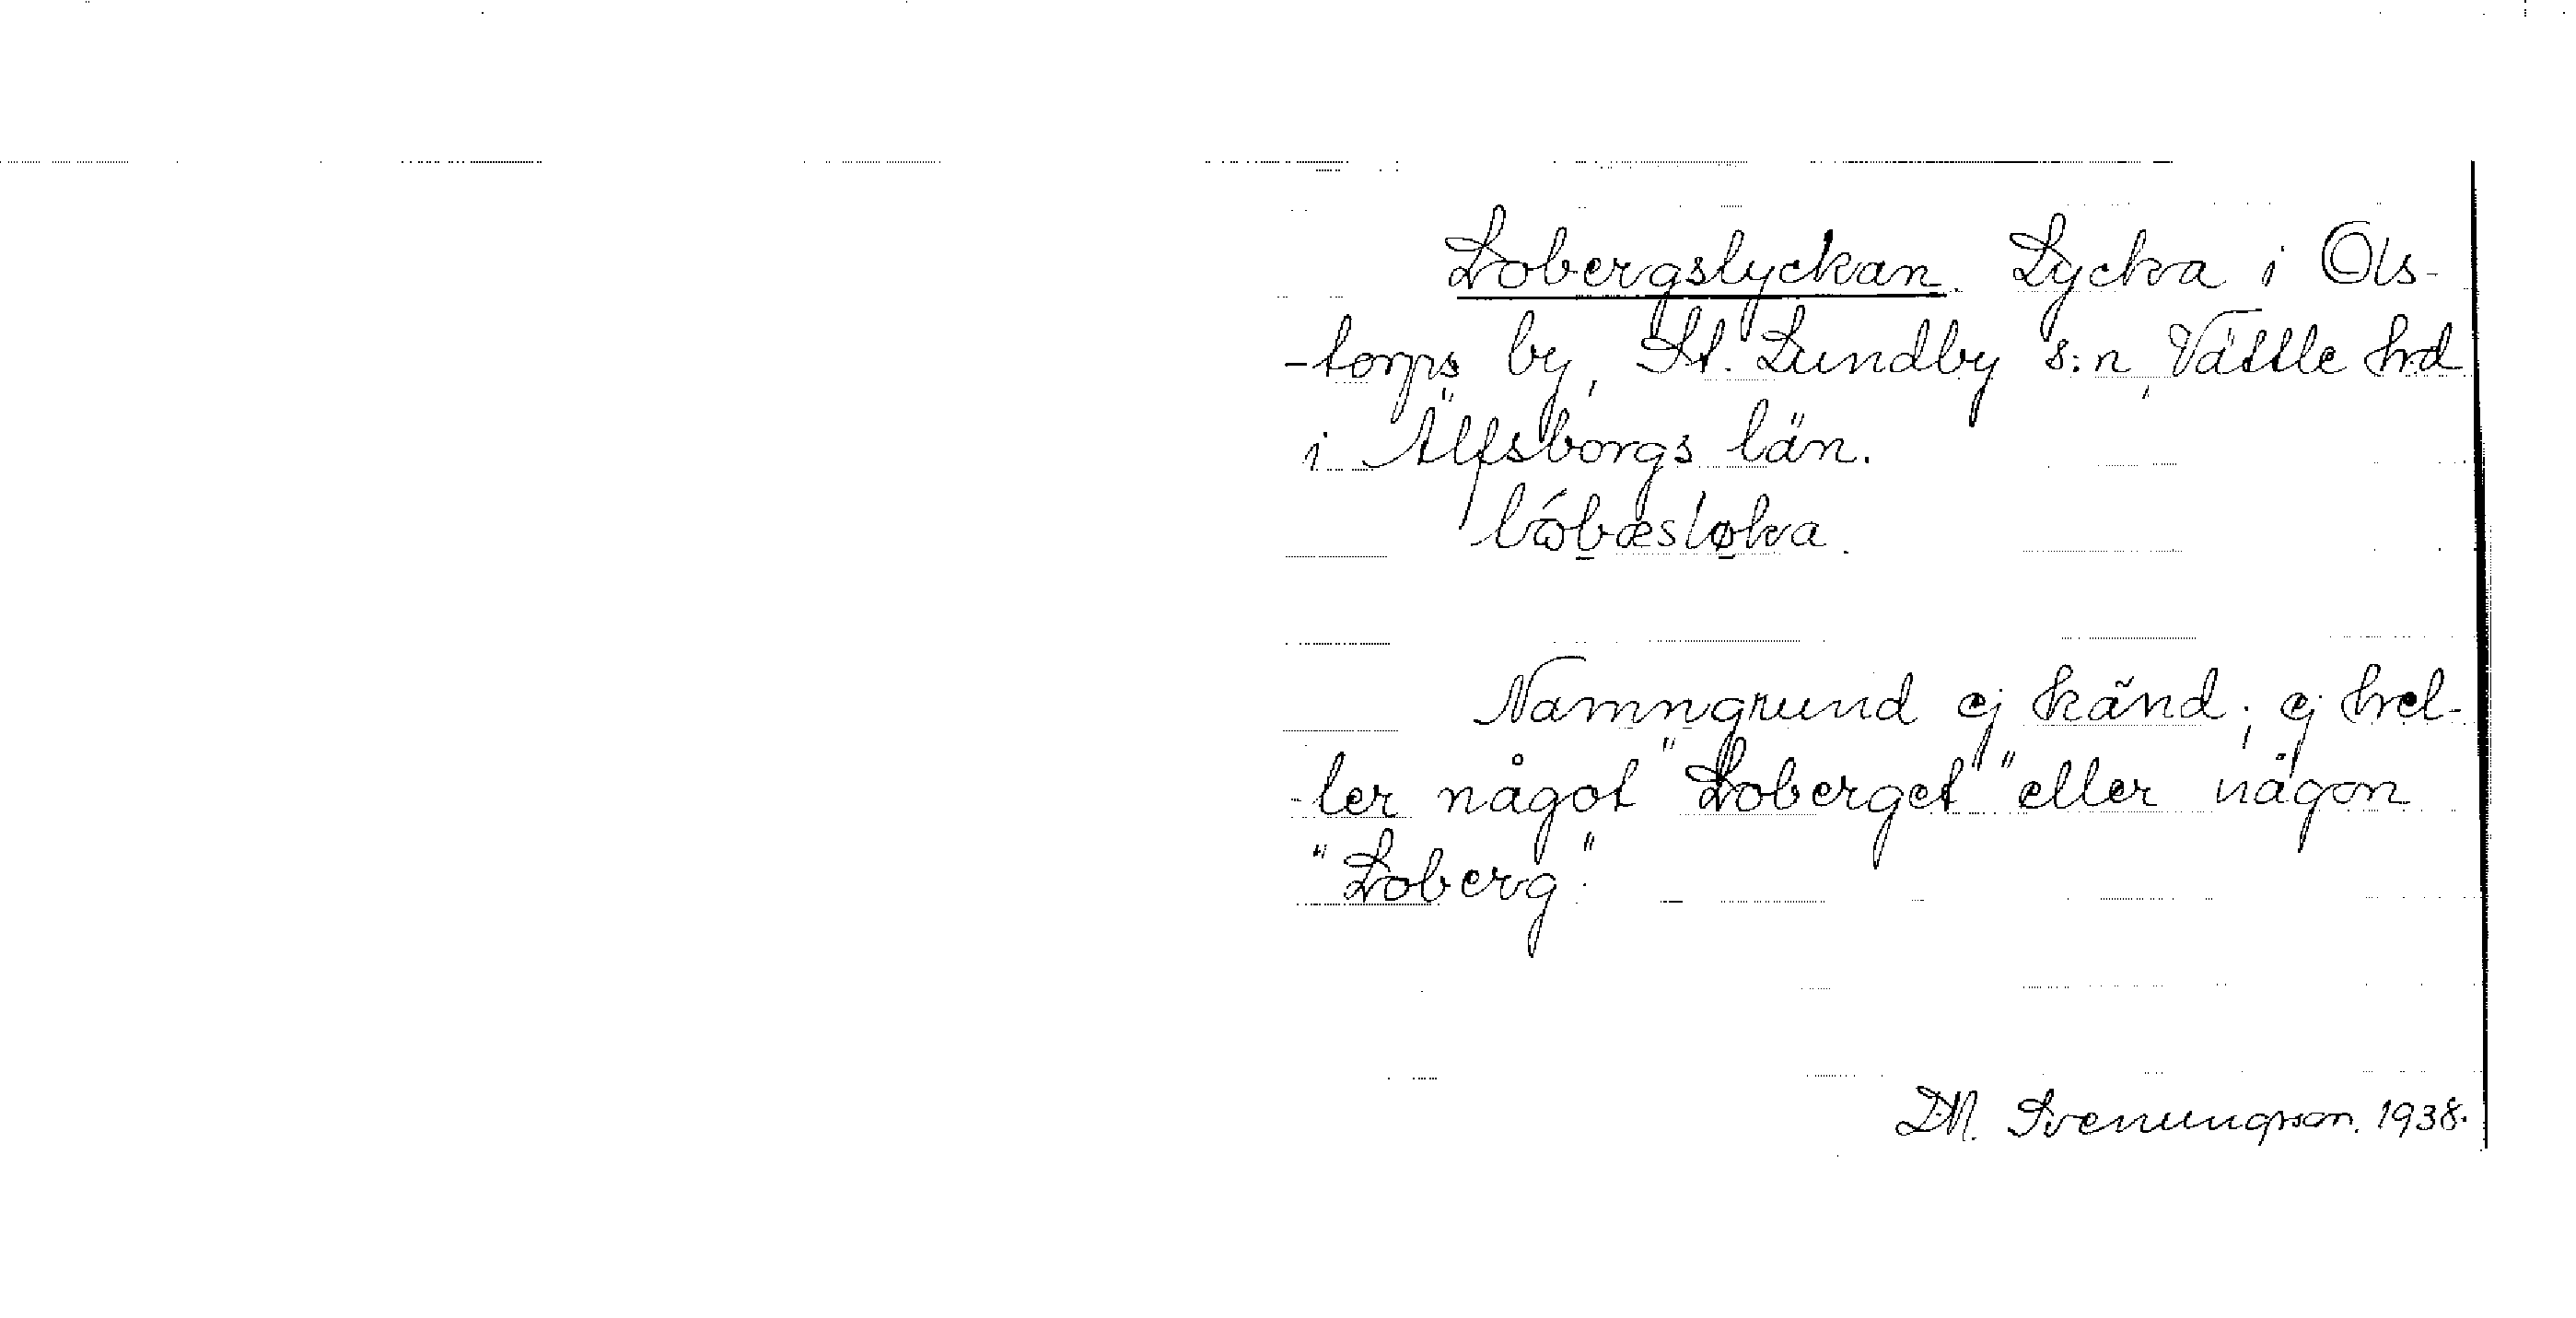 Lobergslyckan. Lycka i Ols-
-torps by, St. Lundby s:n, Vättle hd
i Älfsborgs län.
lóbæsløka.
Namngrund ej känd; ej hel-
-ler något "Loberget" eller någon
"Loberg".
D.N. Svenungsson. 1938.